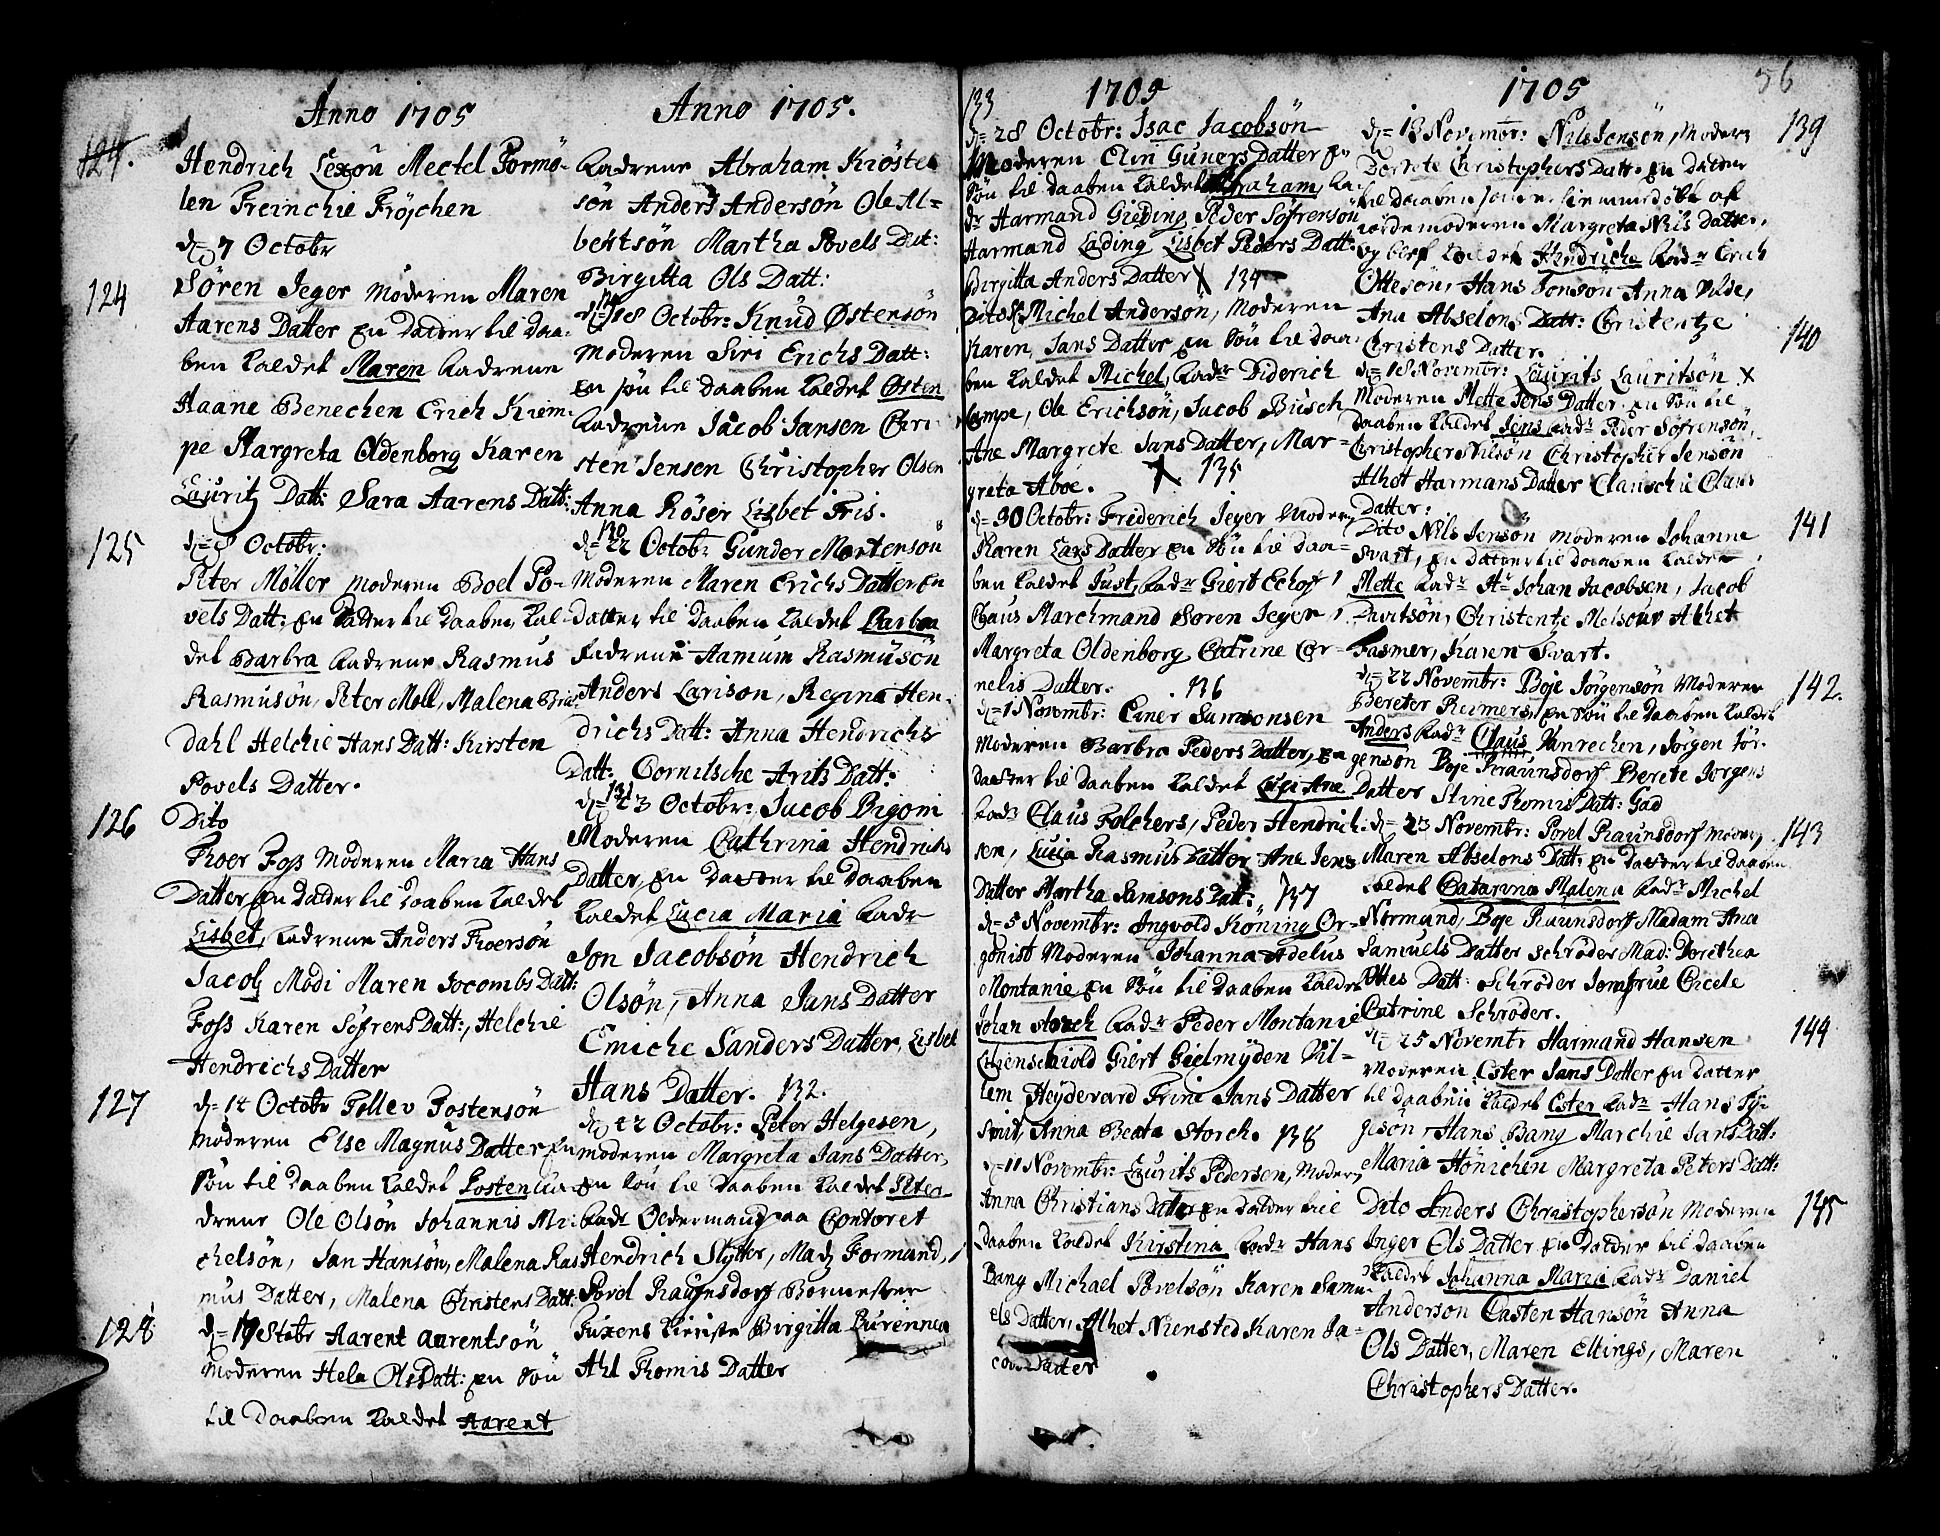 Anno 1705
124.
Hendrich Lexøn Mectel Pormø-
len Freinchie Frøjchen
d= 7 Octobr
124
Søren Jeger moderen Maren
Aarens Datter En datter til daa-
ben kaldet Maren Fadrene
Haane Benechen Erich Kiem-
pe Margreta Oldenborg Karen
Lauritz Datt: Sara Aarens Datt:
125
d= 8 Octobr:
Peter Møller moderen Boel Po-
vels Datt: En datter til daaben kal-
det Barbra Fadrene Rasmus
Rasmusøn, Peter Moll, Malena
Dahl Helchie Hans Datt: Kirsten
Povels Datter.
126
Dito
Troer Foss Moderen Maria Hans
Datter En datter til daaben kaldet
Lisbet, Fadrene Anders Troersøn
Jacob Modi Maren Jocombs Datt:
Foss Karen Sofrens Datt:, Helchie
Hendrichs Datter
127
d= 12 Octobr Tollev Tostensøn
moderen Else Magnus Datter En
Søn til daaben kaldet Tosten Fa-
drene Ole Olsøn Johannis Mi-
chelsøn, Jan Hansøn, Malena Ras
mus Datter, Malena Christens Datt:
128
d= 19 8tobr Aarent aarentsøn
Moderen Hela Ols Datt: En Søn
til daaben kaldet Aarent
Anno 1705.
Fadrene Abraham Kiøste
søn Anders Andersøn Ole Al-
bertsøn Martha Povels Dat:
Birgitta Ols Datt:
129
d= 18 Octobr: Knud Østensøn
Moderen Siri Erichs Datt:
En søn til daaben kaldet Østen
Fadrene Jacob Jansen Chri-
sten Jensen Christopher Olsen
Anna Røser Lisbet Fris.
130
d= 22 Octobr Gunder Mortensøn
Moderen Maren Erichs Datter En
Datter til daaben kaldet Barbra
Fadrene Hamum Rasmusøn
Anders Larison, Regina Hen-
drichs Datt: Anna Hendrichs
Datt: Cornilsche Arits Datt:
131
d= 23 Octobr: Jacob Bigoni
Moderen Cathrina Hendrichs
Datter, En datter til daaben
kaldet Lucia Maria Fadr
Jon Jacobsøn Hendrich
Olsøn, Anna Jans Datter
Emiche Sanders Datter, Lisbet
Hans Datter. 132.
d= 22 Octobr: Peter Helgesen,
moderen Margreta Jans Datter,
En Søn til daaben kaldet Peter
Fadr Oldermand paa Contoret
Hendrich Slytter, Madz Formand,
Povel Raunsdorf Bormester
Birgitta
Ahl Thomis Datter
133
1705
d= 28 Octobr: Isac Jacobsøn
Moderen Elin Guners Datter En
Søn til daaben kaldet Abraham, Fa-
dr Harmand Gieding, Peder Sofrensøn
Harmand Lading Lisbet Peders Datt:
Birgitta Anders Datter X 134
Dito Michel Andersøn, Moderen
Karen Jans Datter En Søn til daa-
ben kaldet Michel, Fadr Diderich
Campe, Ole Erichsøn, Jacob Busch
Ane Margrete Jans Datter, Mar-
greta Aboe. X 135
d= 30 Octobr: Friderich Jeger Moder,
Karen Lars Datter En Søn til daa-
ben kaldet Just, Fadr Giert Echof,
Claus Marchmand Søren Jeger,
Margreta Oldenborg Catrine Cor-
nelis Datter. 136
d= 1 Novembr: Einer Samsonsen
Moderen Barbra Peders Datter, En
datter til daaben kaldet Ane
Fadr Claus Folchers, Peder Hendrich-
sen, Lucia Rasmus Datter Ane Jens
Datter Martha Samsons Datt: 137
d= 5 Novembr: Ingvold Køning Or-
gonist Moderen Johanna Adelus
Montanie En Søn til daaben kaldet
Johan storch Fadr Peder Montanie
Giert Gielmyden Vil-
lem Heyderard Trine Jans Datter
Smit, Anna Beata Storch. 138
d= 11 Novembr: Laurits Pedersen, Moder,
Anna Christians Datter En datter til
daaben kaldet Kirstina Fadr Hans
Bang Michael Povelsøn Karen Samu-
els Datter, Alhet Niensted Karen Ja-
cobs Datter
1705
56
139
d= 13 Novembr: Nils Jensøn, Moder
Dorrete Christophers Datt: En datter
til daaben
jordemoderen Margreta Nils Datter,
kaldet Hendricha Fadr Erich
Ottesøn, Hans Tonsøn Anna Vilde,
Ana Abselons Datt: Christentze
140
Christens Datter.
d= 18 Novembr: Laurits Lauritsøn X
Moderen Mette Jens Datter En Søn til
daaben kaldet Jens Fadr Peder Sofrensøn,
Christopher Nilsøn Christopher Jensøn
Alhet Harmans Datter Clauschie Claus
Datter:
141
Dito Nils Jensøn Moderen Johanne
Svart, En datter til daaben kaldet
Mette Fadr Hr Johan Jacobsen, Jacob
Davitsøn, Christentze Alhet
Fasmer, Karen Svart.
142.
d= 22 Novembr: Boje Jørgensøn Moderen
Bereter Reimers, En Søn til daaben kaldet
Anders Fadr Claus Vanrechen, Jørgen Jør-
gensøn Boje Praunsdorf Berete Jørgens
Datter Stine Thomis Datt: Gad
143
d= 23 Novembr: Povel Raunsdorf Moder,
Maren Abselons Datt: En datter til daaben
kaldet Catarina Malena Fadr Michel
Normand, Boje Raunsdorf Madam Ana
Samuels Datter Schrøder Mad: Dorothea
Ottes Datt: Schrøder Jomfrue Cicele
Catrine Schrøder.
144
d= 25 Novembr Harmand Hansen
Moderen Ester Jans Datter En datter
til daaben kaldet Ester Fadr Hans Ty-
gesøn, Hans Bang Marchie Jans Datt:
Maria Hønichen Margreta Peters Datt:
145
Dito Anders Christophersøn Moderen
Inger Ols Datter En datter til daaben
kaldet Johanna Maria Fadr Daniel
Anderson Casten Hansøn Anna
Ols Datter, Maren Ellings, Maren
Christophers Datter.